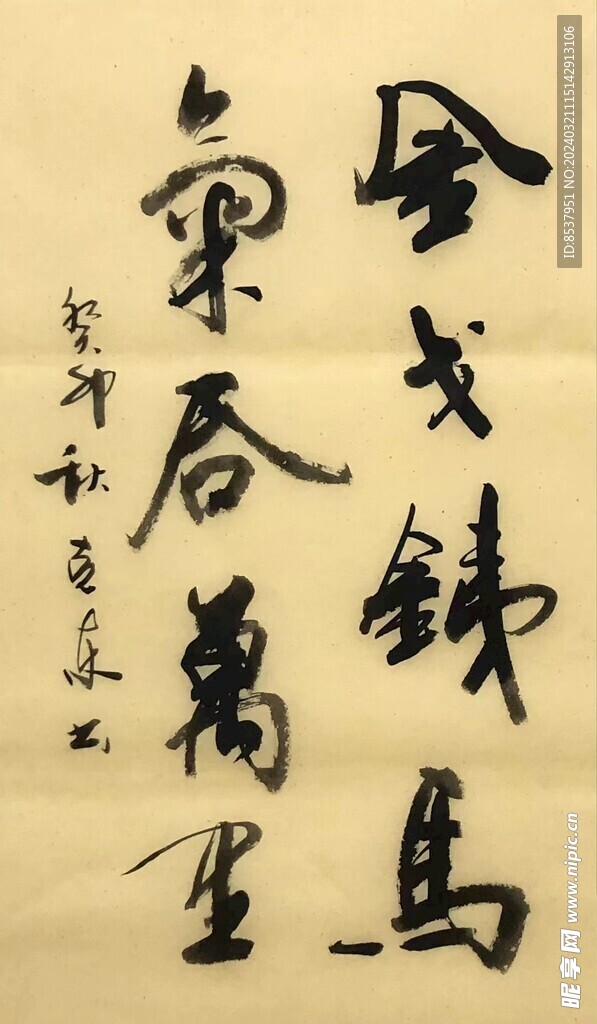 金戈銕馬
氣吞萬里
癸卯秋克书
ID:8537951 NO:20240321115142913106
昵享网 www.nipic.cn